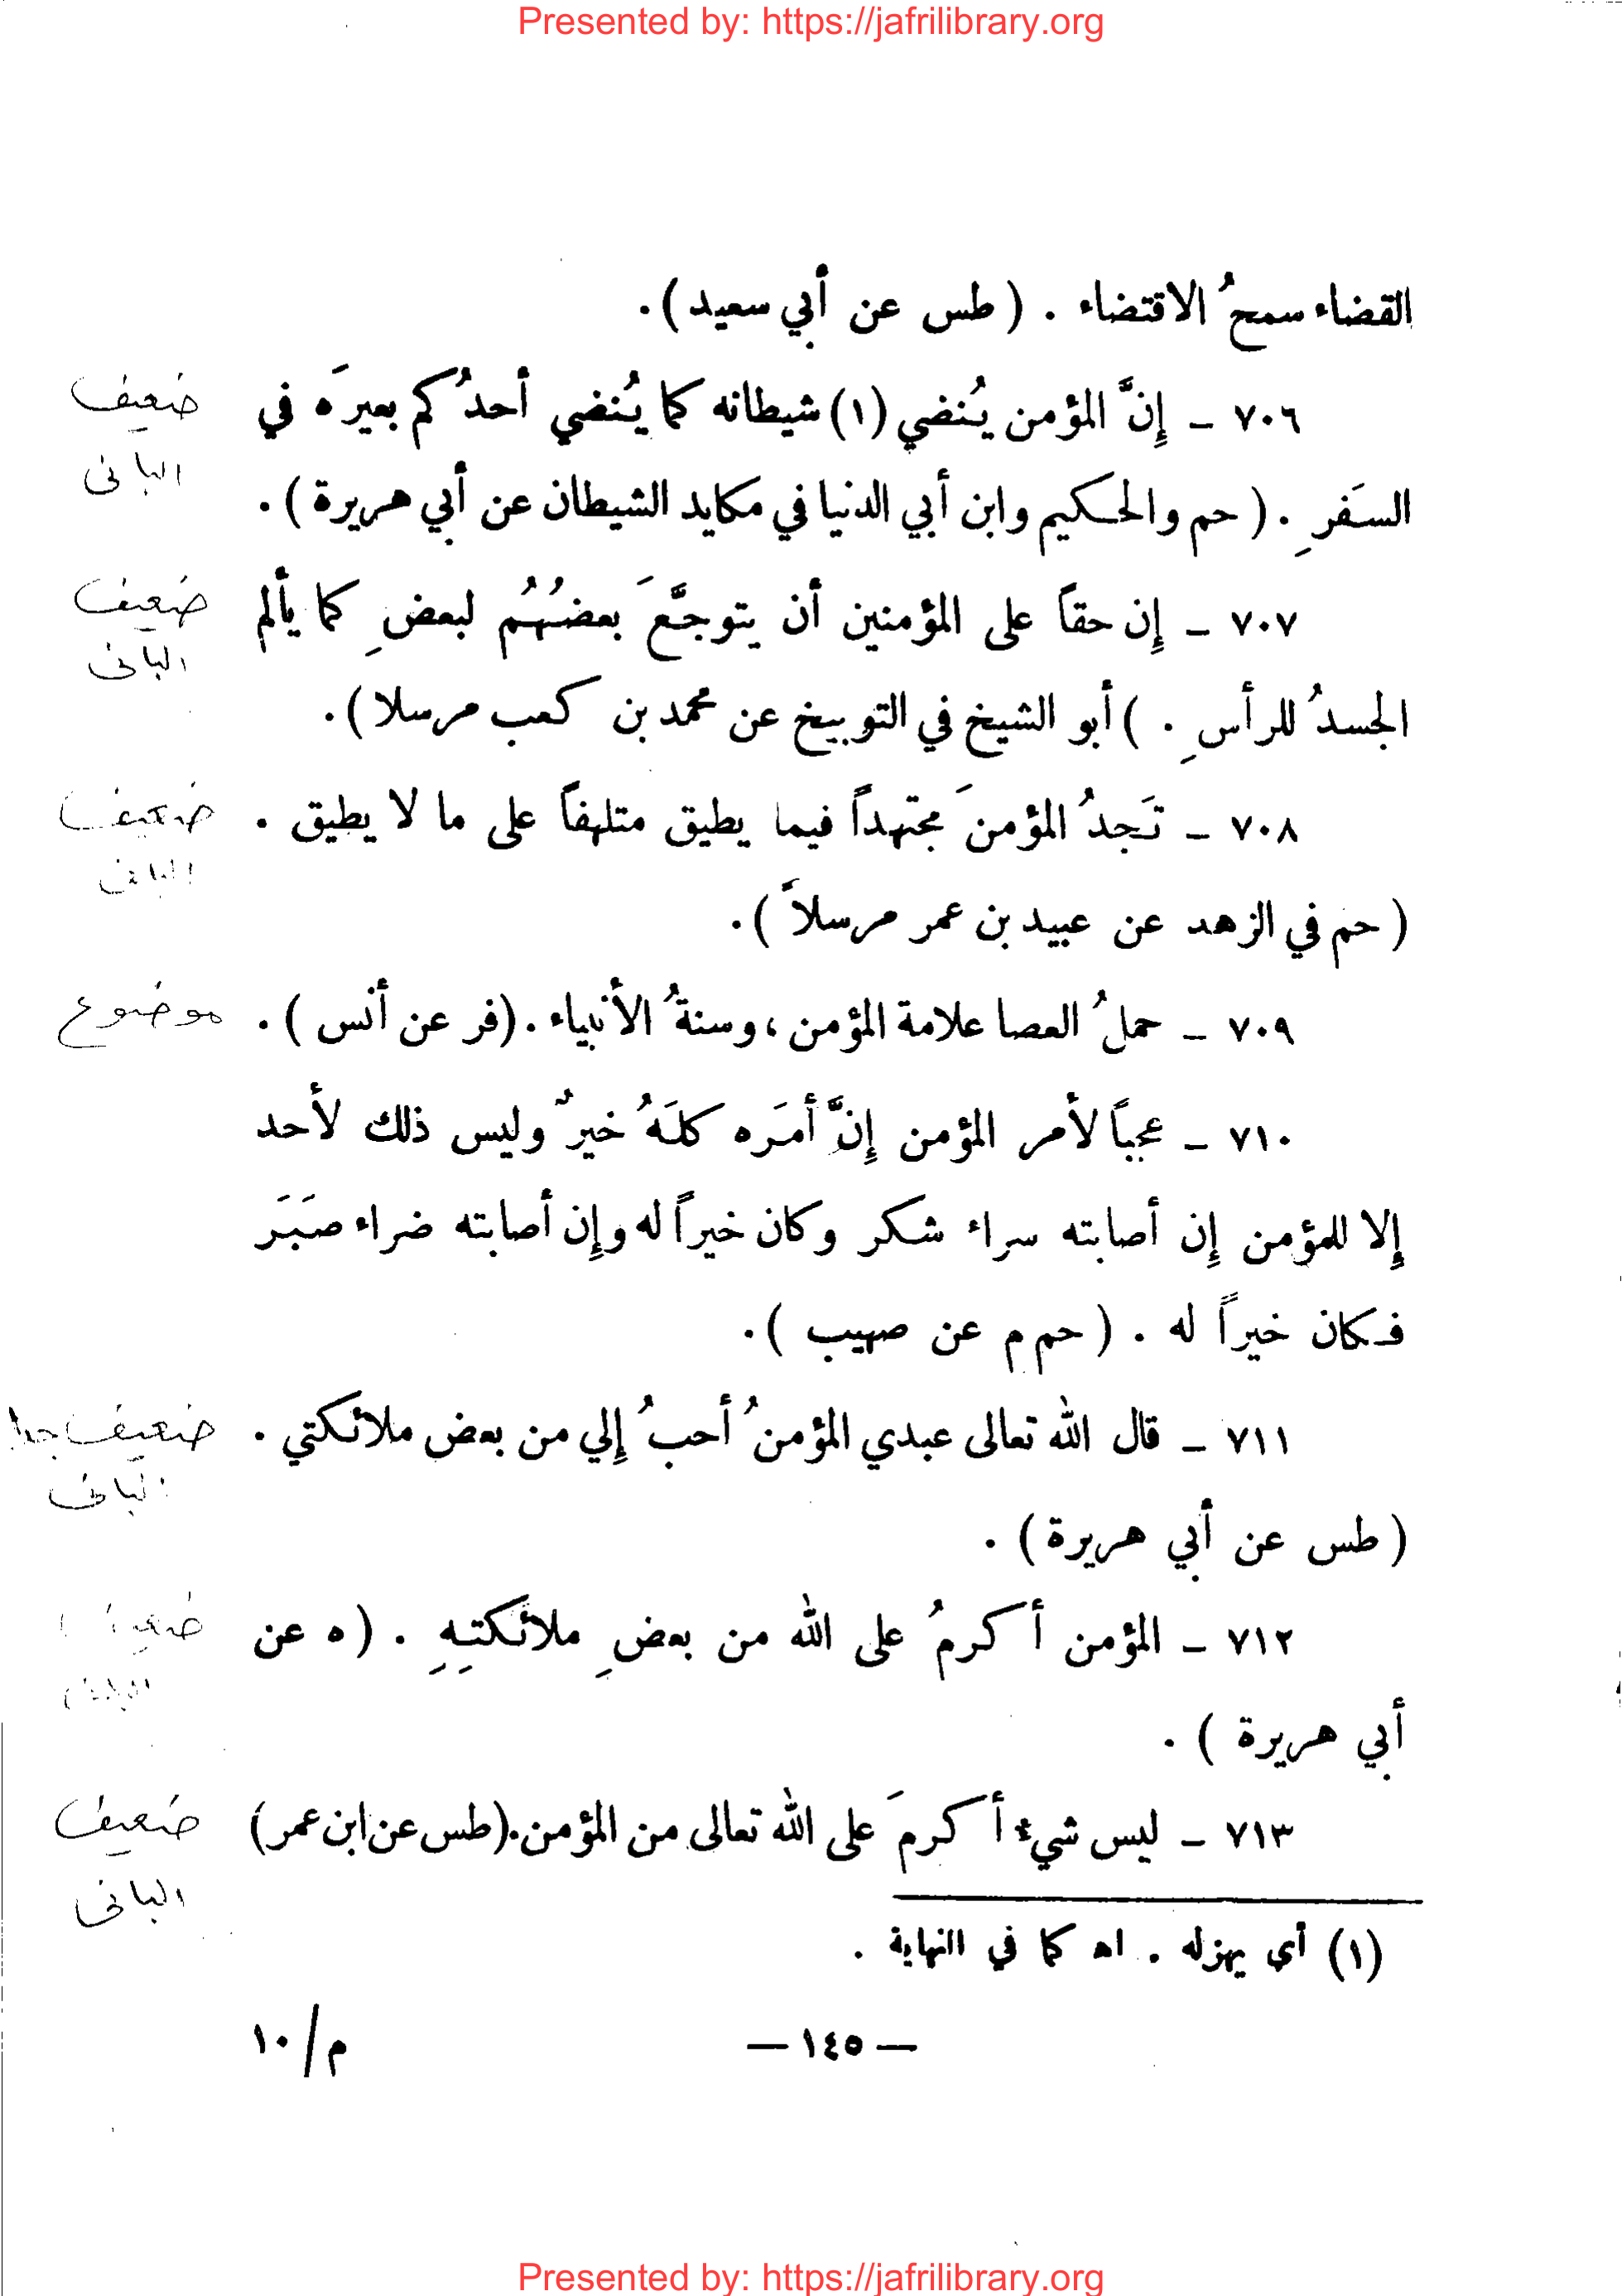 Presented by: https://jafrilibrary.org
القضاء سمحُ الاقتضاء . ( طس عن أبي سعيد ) .
٧٠٦ ـ إِنَّ المؤمن يُنضي (١) شيطانه كما يُنضي أحدُكم بعيرَه في
ضعيف
البانى
السَفرِ . ( حم والحكيم وابن أبي الدنيا في مكايد الشيطان عن أبي هريرة ) .
٧٠٧ ـ إِن حقاً على المؤمنين أن يتوجَّعَ بعضُهُم لبعضِ كما يألم
ضعيف
البانى
الجسدُ للرأسِ . ) أبو الشيخ في التوبيخ عن محمد بن كعب مرسلا ) .
٧٠٨ ـ تَجدُ المؤمنَ مجتهداً فيما يطيق متلهفاً على ما لا يطيق .
ضعيف
البانى
( حم في الزهد عن عبيد بن عمر مرسلاً ) .
٧٠٩ ـ حملُ العصا علامة المؤمن ، وسنةُ الأنبياء . (فر عن أنس ) .
موضوع
٧١٠ ـ عجباً لأمر المؤمن إِنَّ أمرَه كلَهُ خيرٌ وليس ذلك لأحد
إِلا للمؤمن إِن أصابته سراء شكر وكان خيراً له وإِن أصابته ضراء صبَرَ
فكان خيراً له . ( حم م عن صهيب ) .
٧١١ ـ قال الله تعالى عبدي المؤمنُ أحبُ إِلي من بعض ملائكتي .
ضعيف جدا
البانى
( طس عن أبي هريرة ) .
٧١٢ ـ المؤمن أكرمُ على الله من بعضِ ملائكتِهِ . ( ه عن
ضعيف
أبي هريرة ) .
٧١٣ ـ ليس شيء أكرمَ على الله تعالى من المؤمن.(طس عن ابن عمر)
ضعيف
البانى
(١) أي يهزله . اه كما في النهاية .
— ١٤٥ —
م/١٠
Presented by: https://jafrilibrary.org